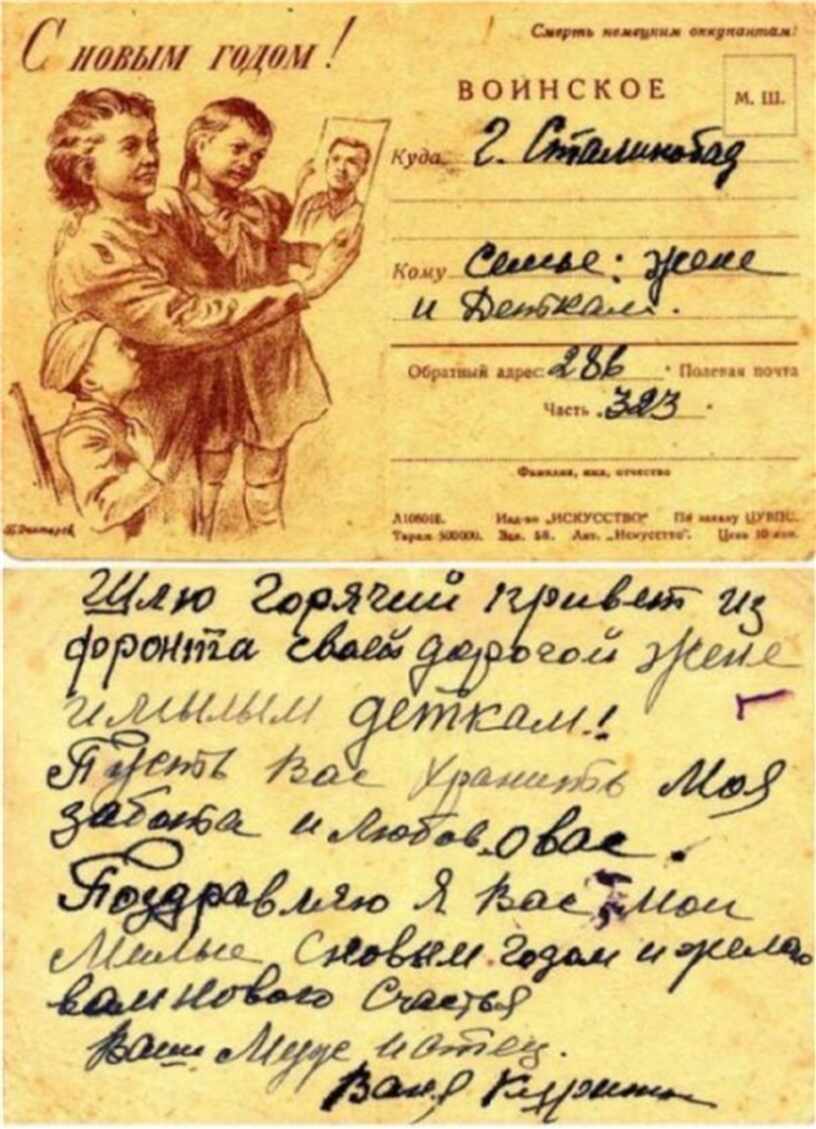 С новым годом!
Смерть немецким оккупантам!
ВОИНСКОЕ
М. Ш.
Куда г. Сталинобад
Кому Семье: жене
и Деткам.
Обратный адрес: 286 Полевая почта
Часть 323
Фамилия, имя, отчество
Изд-во „ИСКУССТВО“ По заказу ЦУВПС.
Тираж 500000. Зак. 58. Лит. „Искусство“. Цена 10 коп.
Шлю горячий привет из
фронта своей дорогой жене
и милым деткам!
Пусть Вас хранить Моя
забота и любов. о вас.
Поздравляю я Вас, мои
Милые с новым годом и желаю
вам нового счастья
Ваш Муж и отец.
Ваня